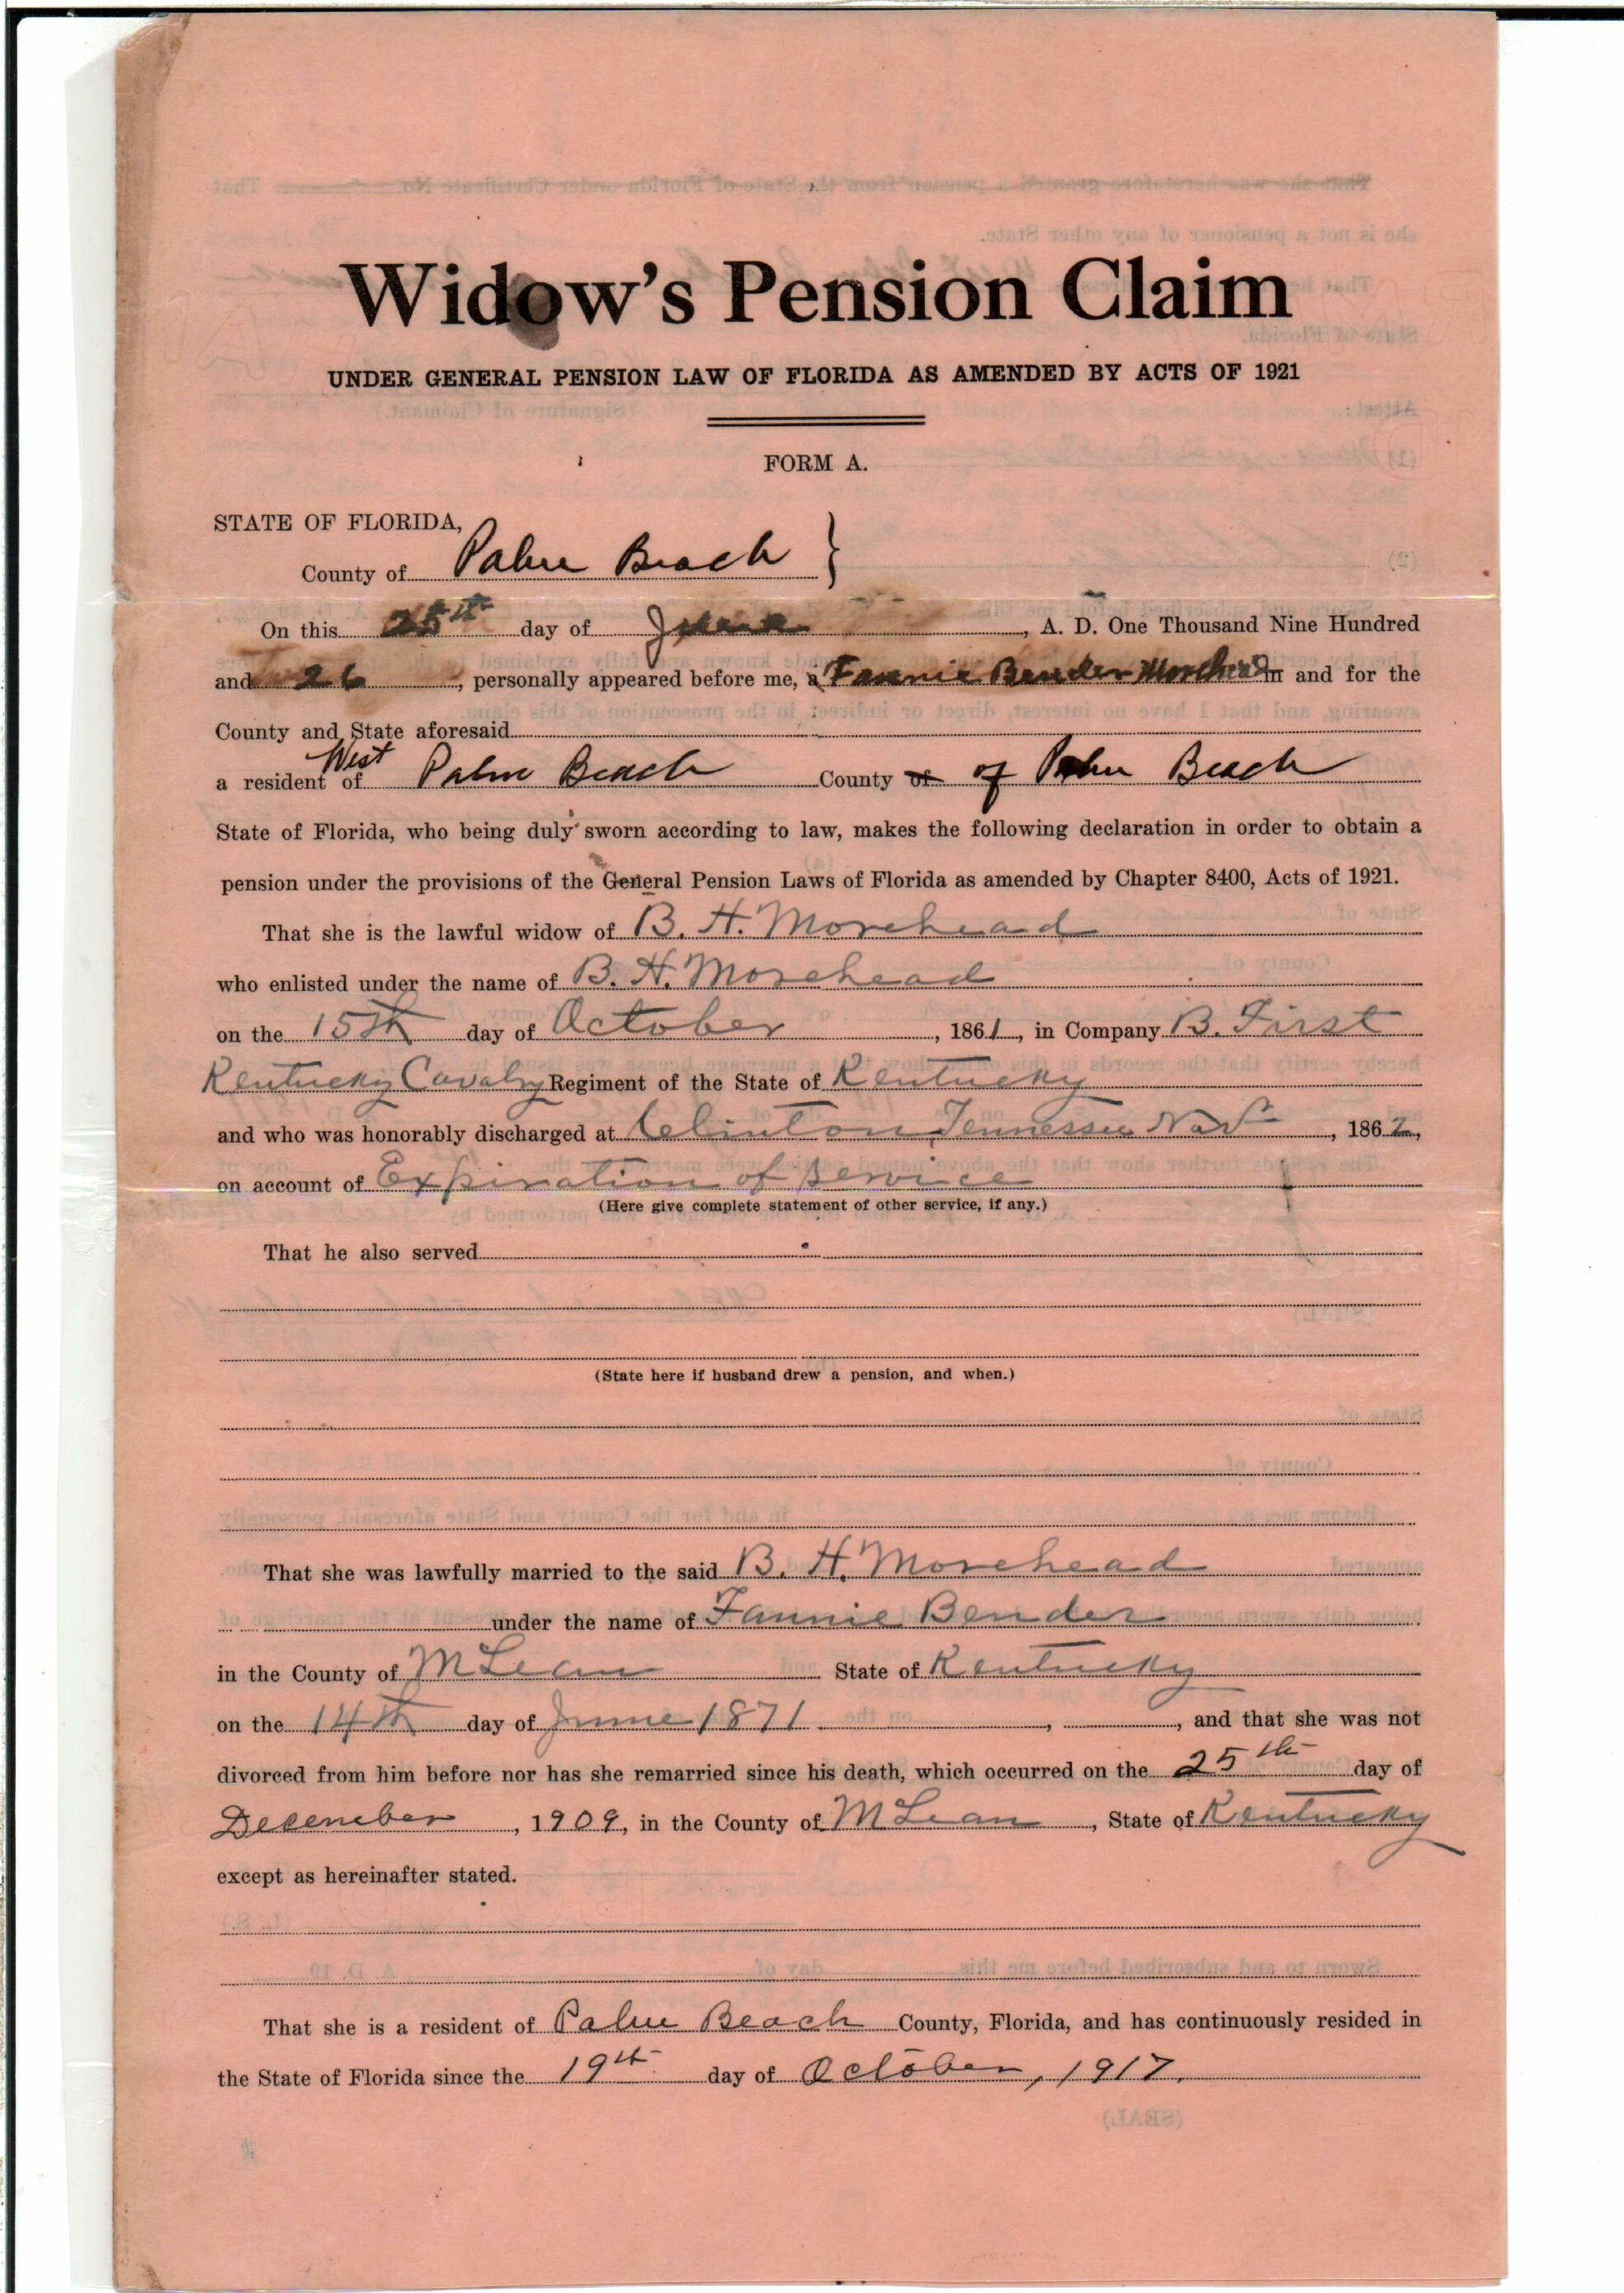 Widow's Pension Claim
UNDER GENERAL PENSION LAW OF FLORIDA AS AMENDED BY ACTS OF 1921
FORM A.
STATE OF FLORIDA,
County of Palm Beach }
On this 25th day of June, A. D. One Thousand Nine Hundred
and 26, personally appeared before me, a Fannie Bender Morehead in and for the
County and State aforesaid
a resident of West Palm Beach County of of Palm Beach
State of Florida, who being duly sworn according to law, makes the following declaration in order to obtain a
pension under the provisions of the General Pension Laws of Florida as amended by Chapter 8400, Acts of 1921.
That she is the lawful widow of B. H. Morehead
who enlisted under the name of B. H. Morehead
on the 15th day of October, 1861, in Company B. First
Kentucky Cavalry Regiment of the State of Kentucky
and who was honorably discharged at Clinton, Tennessee, 1862,
on account of Expiration of Service
(Here give complete statement of other service, if any.)
That he also served
(State here if husband drew a pension, and when.)
That she was lawfully married to the said B. H. Morehead
under the name of Fannie Bender
in the County of McLean State of Kentucky
on the 14th day of June 1871, , and that she was not
divorced from him before nor has she remarried since his death, which occurred on the 25th day of
December, 1909, in the County of McLean, State of Kentucky
except as hereinafter stated.
That she is a resident of Palm Beach County, Florida, and has continuously resided in
the State of Florida since the 19th day of October, 1917.